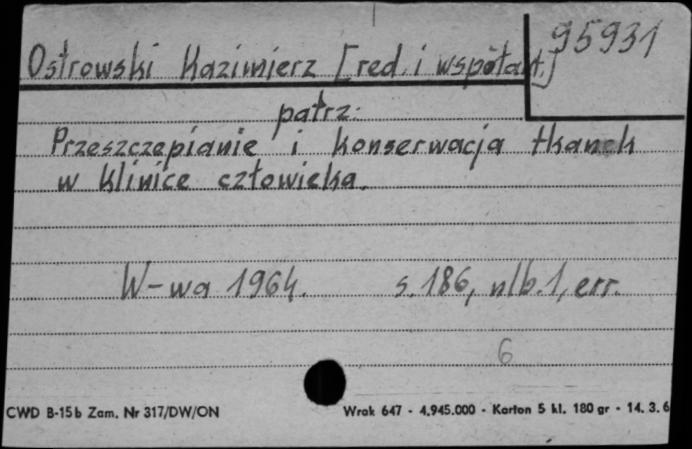 95931
Ostrowski Kazimierz [red. i współaut.]
patrz:
Przeszczepianie i konserwacja tkanek
w klinice człowieka.
W-wa 1964. s. 186, nlb. 1, err.
6
CWD B-15b Zam. Nr 317/DW/ON Wrak 647 - 4.945.000 - Karton 5 kl. 180 gr - 14. 3. 6